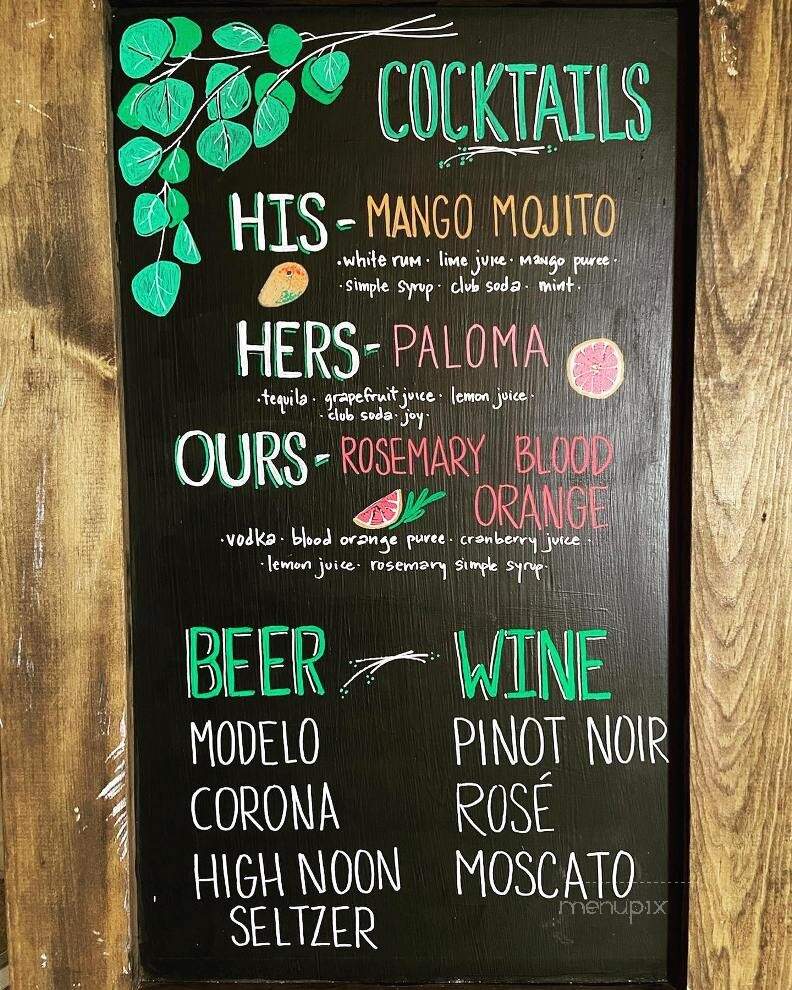 COCKTAILS
HIS - MANGO MOJITO
· white rum · lime juice · mango puree ·
· simple syrup · club soda · mint ·
HERS - PALOMA
· tequila · grapefruit juice · lemon juice ·
· club soda · joy ·
OURS - ROSEMARY BLOOD
ORANGE
· vodka · blood orange puree · cranberry juice ·
· lemon juice · rosemary simple syrup ·
BEER WINE
MODELO PINOT NOIR
CORONA ROSÉ
HIGH NOON MOSCATO
SELTZER
menupix